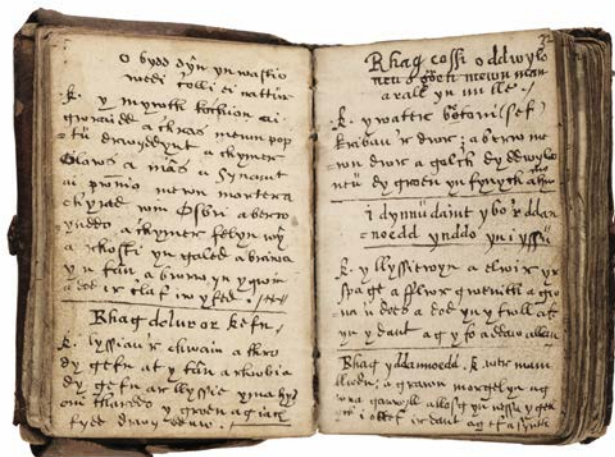 o bydd dyn yn wastio
wedi colli ei nattur
R. y myrtth kochion ai
a chras mewn pop
tu drwyddynt a chymer
Glows a mâs a Synamt
ai mewn mortera
chyrad win Osbri a berw
ynddo a chymer felyn wy
a ychosti yn galed a briwia
yn fân a bwrw yn y gwin
a dod ir claf iw yfed.
Rhag dolur or kefn
R. lyssiau'r chwain a thro
dy gefn at y tân a rhwbia
dy gefn ar llyssie yma hyd
oni tharddo y groen ag iach
fydd drwy
Rhag cossi o ddwylo
neu o goesi mewn man
arall yn un lle.
R. y water betoni (sef)
kribau'r dwr; a berw me
wn dwr a golch dy ddwylo
neu dy groen yn fynych
i dynnu daint y bo'r ddan
noedd ynddo yn i yssu
R. y llyssiewyn a elwir yr
spage a fflwr gwenith a gw
na n does a dod yn y twll at
yn y daint ag y fo a ddaw allan
Rhag y ddannoedd. R.
a grawn mor gelyn ag
wna ganwyll a llosg yn nessa y gen
i ollef ir daint ag ef a